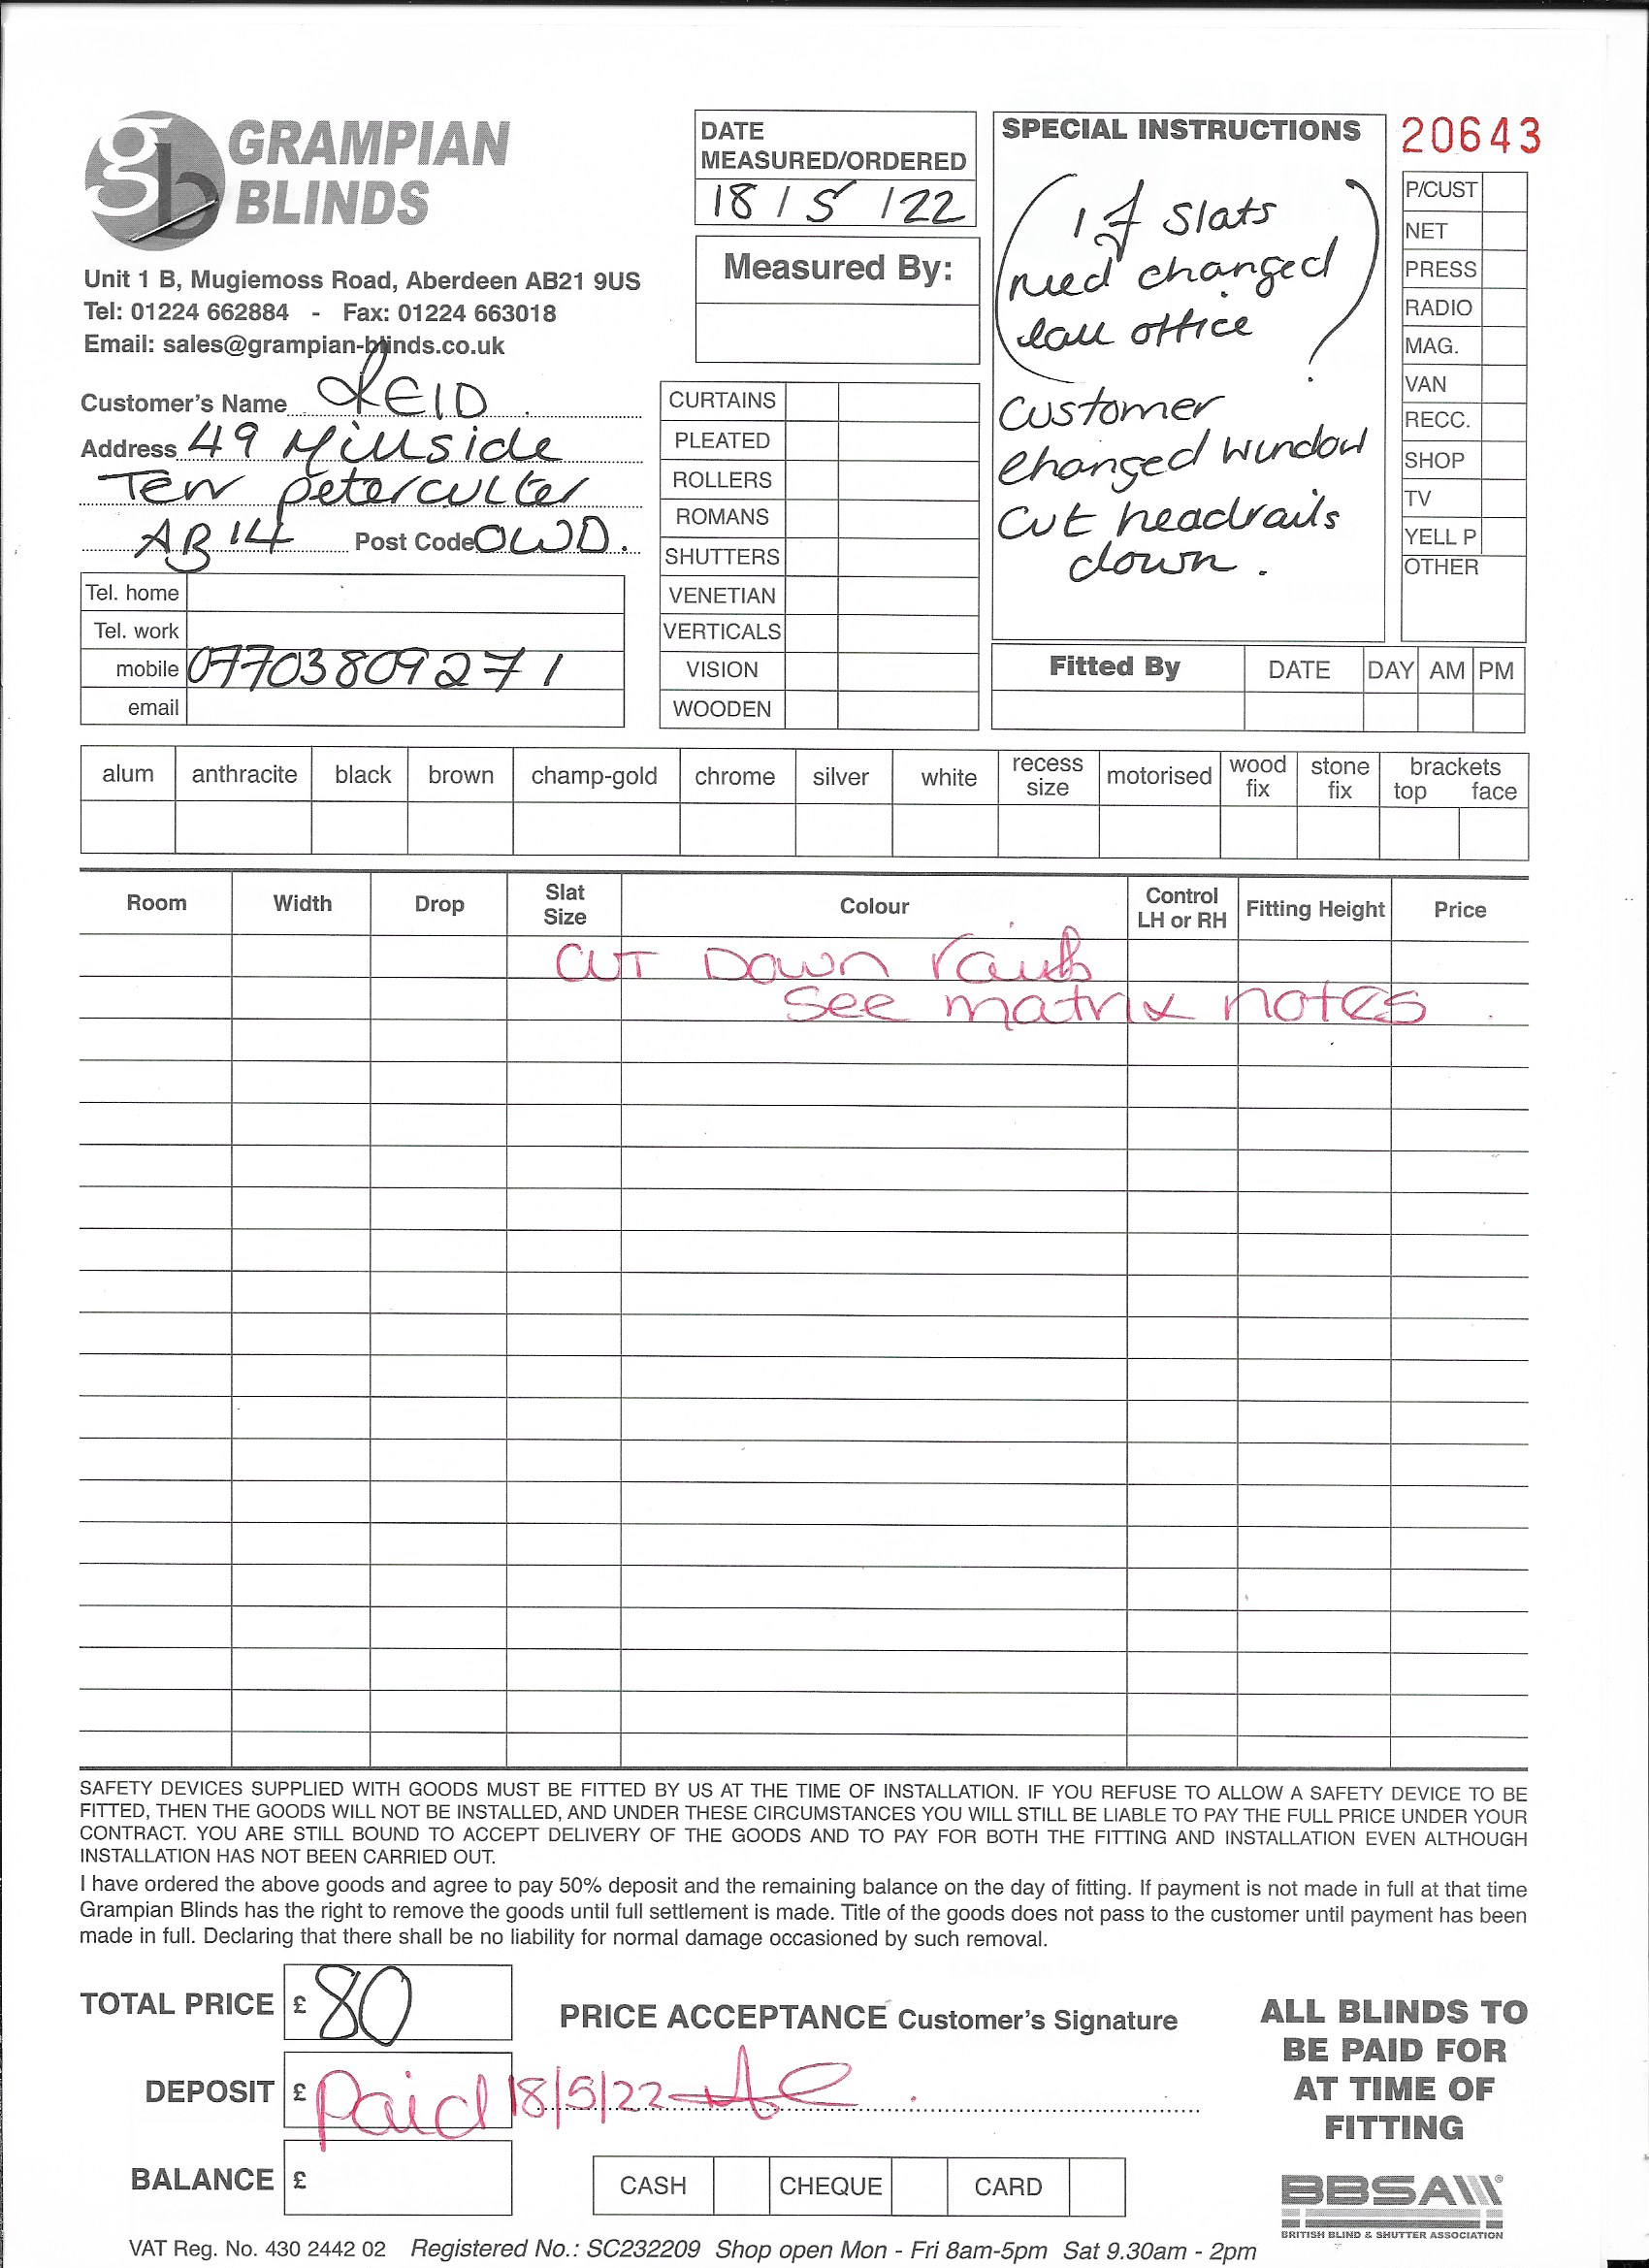 gb GRAMPIAN
BLINDS
Unit 1 B, Mugiemoss Road, Aberdeen AB21 9US
Tel: 01224 662884 - Fax: 01224 663018
Email: sales@grampian-blinds.co.uk
Customer's Name REID
Address 49 Millside
Terr Peterculter
AB14 Post Code 0WD.
Tel. home
Tel. work
mobile 07703809271
email
DATE
MEASURED/ORDERED
18 / 5 / 22
Measured By:
CURTAINS
PLEATED
ROLLERS
ROMANS
SHUTTERS
VENETIAN
VERTICALS
VISION
WOODEN
SPECIAL INSTRUCTIONS
(If slats
need changed
call office)
!
Customer
changed window
cut headrails
down.
20643
P/CUST
NET
PRESS
RADIO
MAG.
VAN
RECC.
SHOP
TV
YELL P
OTHER
Fitted By DATE DAY AM PM
alum anthracite black brown champ-gold chrome silver white recess size motorised wood fix stone fix brackets top face
Room Width Drop Slat Size Colour Control LH or RH Fitting Height Price
CUT DOWN rails
see matrix notes
SAFETY DEVICES SUPPLIED WITH GOODS MUST BE FITTED BY US AT THE TIME OF INSTALLATION. IF YOU REFUSE TO ALLOW A SAFETY DEVICE TO BE
FITTED, THEN THE GOODS WILL NOT BE INSTALLED, AND UNDER THESE CIRCUMSTANCES YOU WILL STILL BE LIABLE TO PAY THE FULL PRICE UNDER YOUR
CONTRACT. YOU ARE STILL BOUND TO ACCEPT DELIVERY OF THE GOODS AND TO PAY FOR BOTH THE FITTING AND INSTALLATION EVEN ALTHOUGH
INSTALLATION HAS NOT BEEN CARRIED OUT.
I have ordered the above goods and agree to pay 50% deposit and the remaining balance on the day of fitting. If payment is not made in full at that time
Grampian Blinds has the right to remove the goods until full settlement is made. Title of the goods does not pass to the customer until payment has been
made in full. Declaring that there shall be no liability for normal damage occasioned by such removal.
TOTAL PRICE £ 80
PRICE ACCEPTANCE Customer's Signature
DEPOSIT £ Paid 18/5/22
BALANCE £
CASH CHEQUE CARD
ALL BLINDS TO
BE PAID FOR
AT TIME OF
FITTING
BBSA
BRITISH BLIND & SHUTTER ASSOCIATION
VAT Reg. No. 430 2442 02 Registered No.: SC232209 Shop open Mon - Fri 8am-5pm Sat 9.30am - 2pm